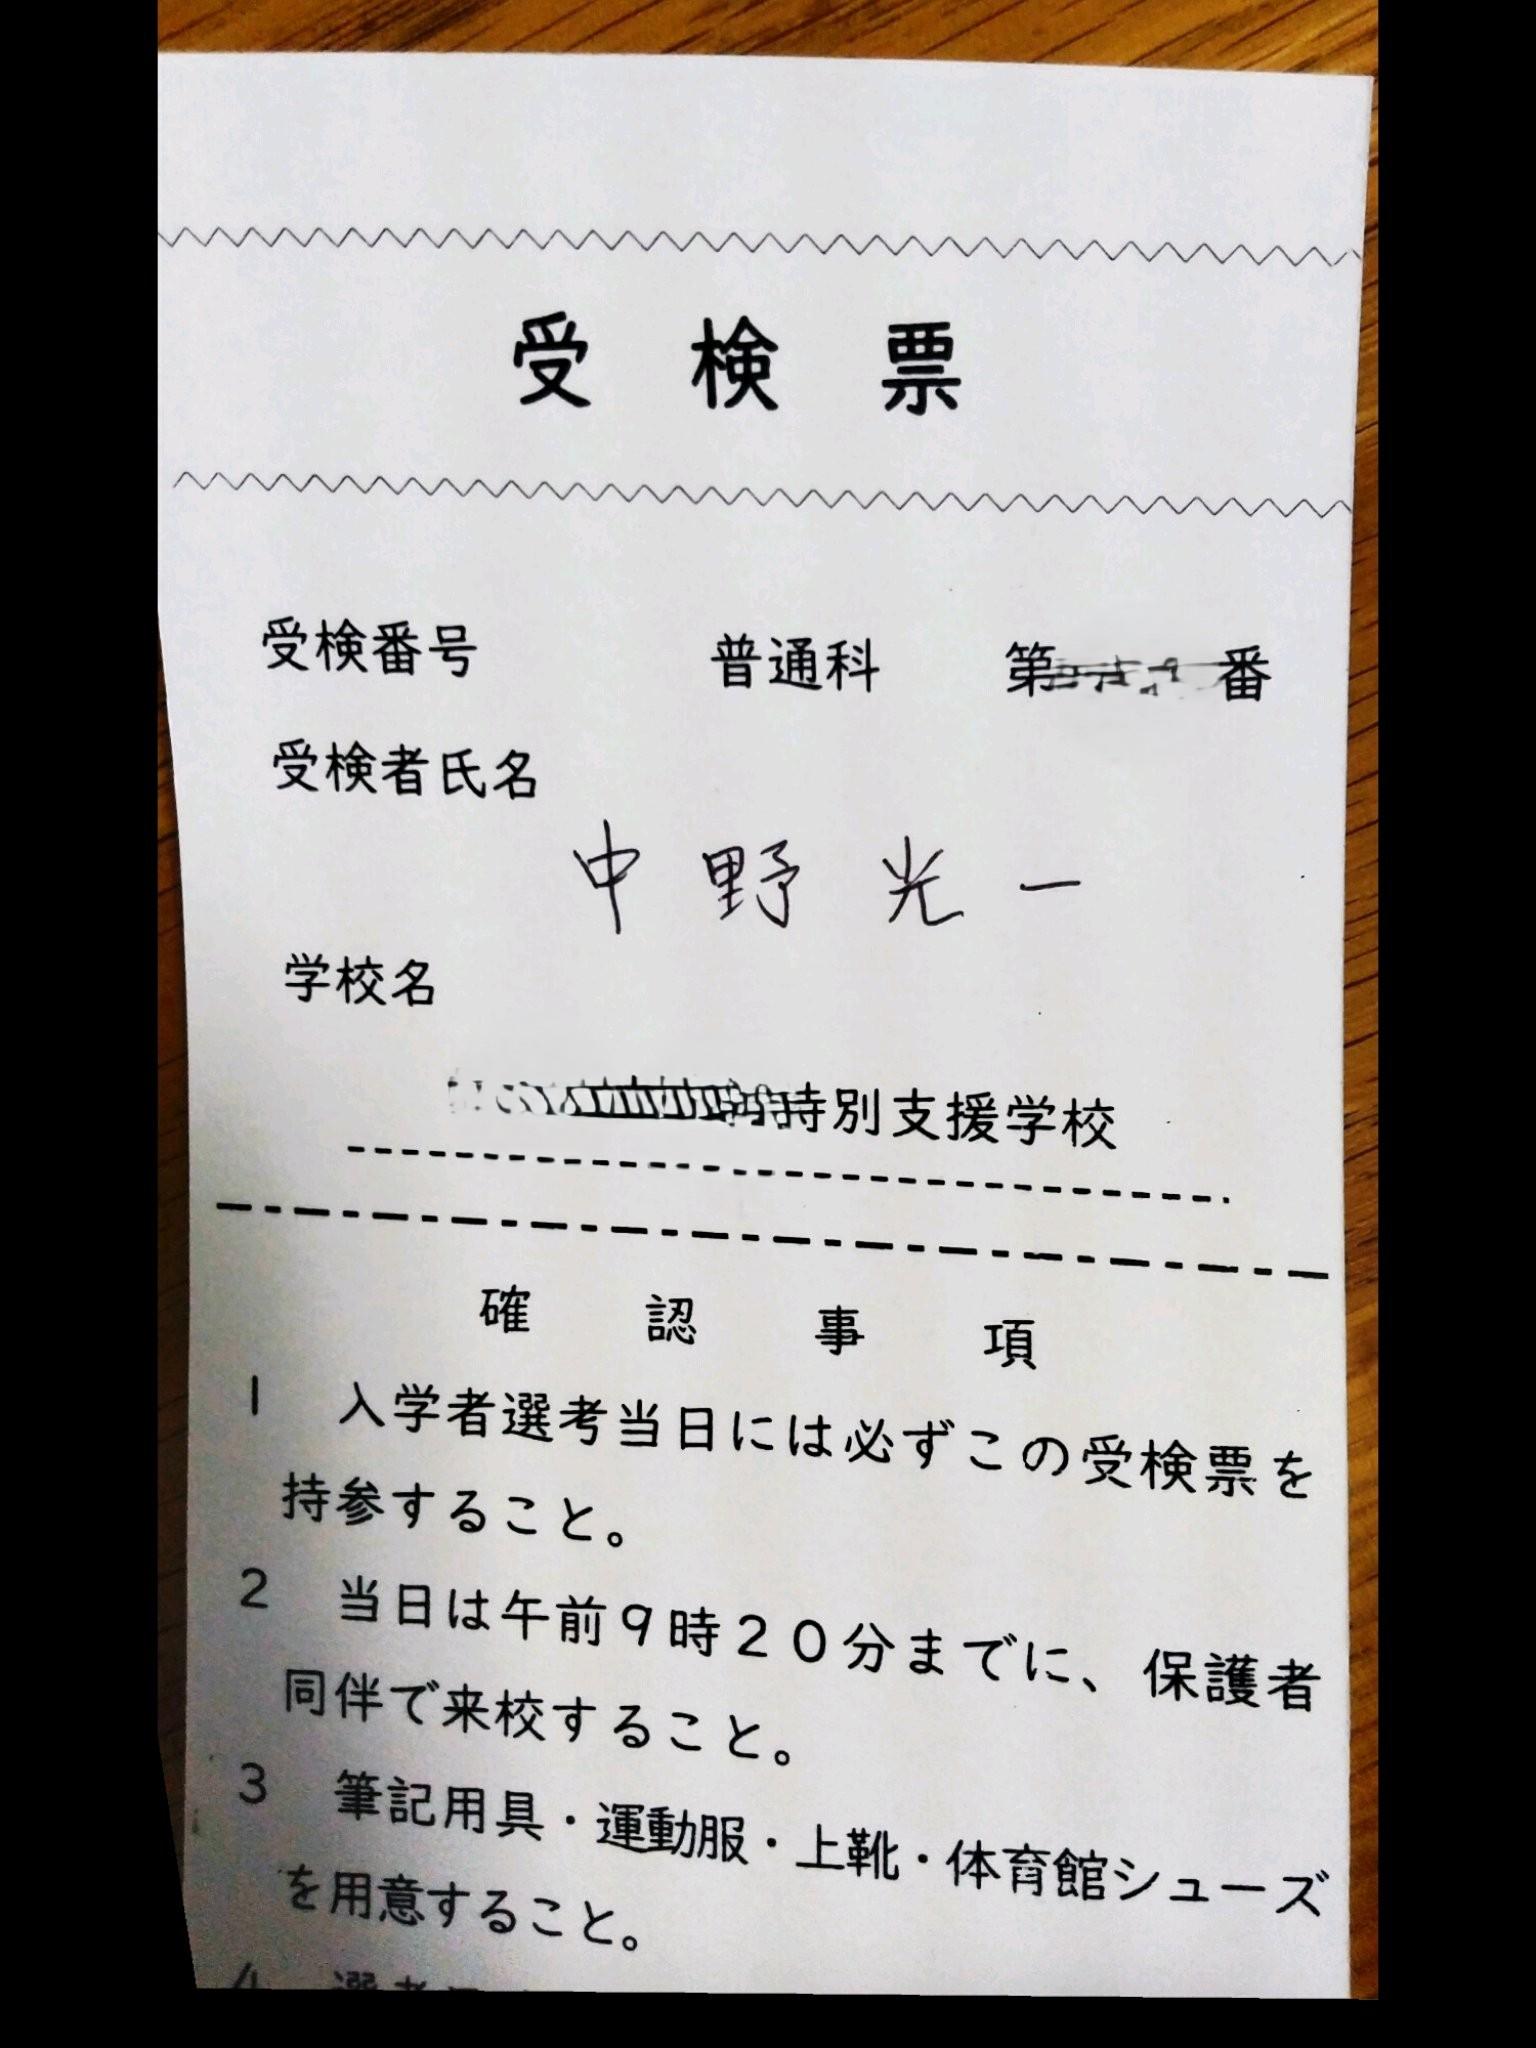 受検票
受検番号 普通科 第 番
受検者氏名
中野光一
学校名
特別支援学校
確認事項
1 入学者選考当日には必ずこの受検票を
持参すること。
2 当日は午前9時20分までに、保護者
同伴で来校すること。
3 筆記用具・運動服・上靴・体育館シューズ
を用意すること。
4 選考